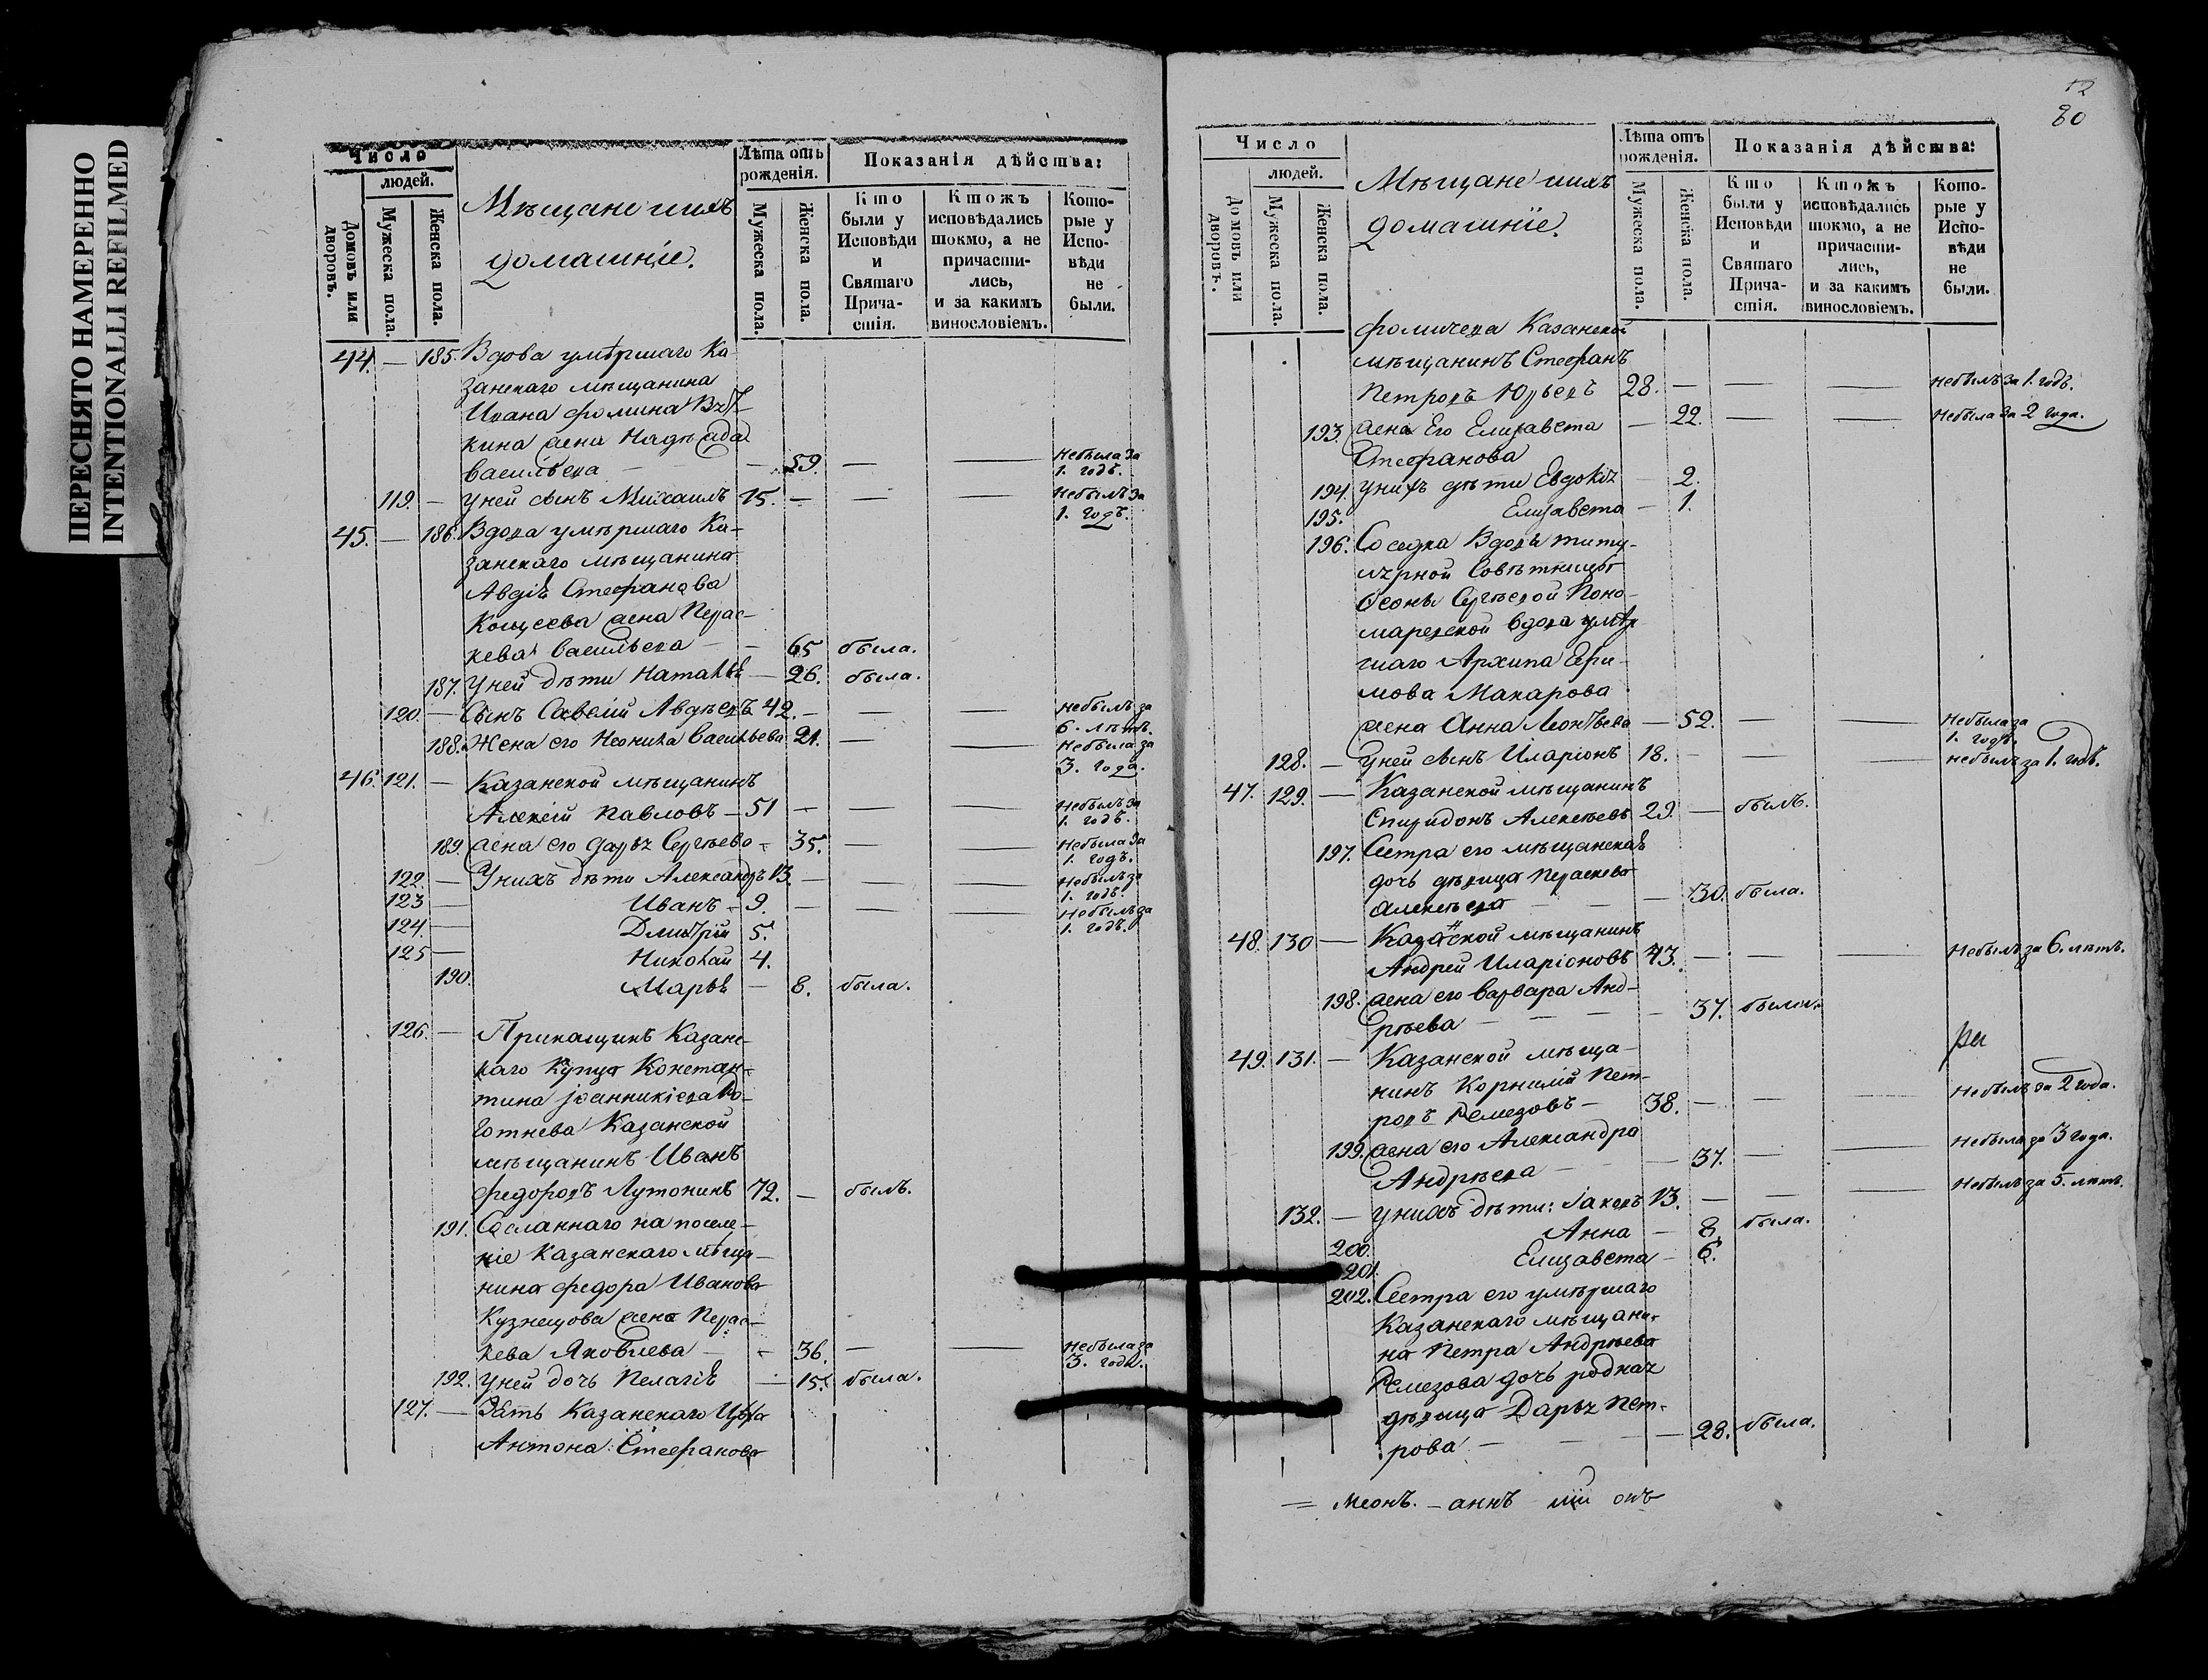 ПЕРЕСНЯТО НАМЕРЕННО
INTENTIONALLI REFILMED
Число
людей.
Домовъ или дворовъ.
Мужеска пола.
Женска пола.
Мѣщане и ихъ
домашніе.
Лѣта отъ рожденія.
Мужеска пола.
Женска пола.
Показанія дѣйства:
Кто были у Исповѣди и Святаго Прича-стія.
Ктожъ исповѣдались токмо, а не причасти-лись, и за какимъ винословіемъ.
Кото-рые у Испо-вѣди не были.
44. — 185. Вдова умѣршаго Ка-
занскаго мѣщанина
Ивана Фомина
кина жена Надежда
Васильева — — 59. — — Небыла за 1. годъ.
119. — У ней сынъ Михаилъ 15. — — — Небылъ за 1. годъ.
45. — 186. Вдова умѣршаго Ка-
занскаго мѣщанина
Авдія Стефанова
Кощеева жена Перас-
кева Васильева — — 65 была.
187. У ней дѣти Наталья — 26. была.
120. — Сынъ Савелій Авдѣевъ 42. — — — Небылъ за 6. лѣтъ.
188. Жена его Неонила Васильева 21. — — Небыла за 3. года.
46. 121. — Казанской мѣщанинъ
Алексѣй Павловъ — 51 — — — Небылъ за 1. годъ.
189. жена его Дарья Сергѣева — 35. — — Небыла за 1. годъ.
122. — У нихъ дѣти Александръ 13. — — — Небылъ за 1. годъ.
123 — Иванъ — 9. — — — Небылъ за 1. годъ.
124. — Дмитрій 5.
125 — Николай 4.
190. Марья — 8. была.
126. — Прикащикъ Казанс-
каго Купца Констан-
тина Іоанникіева Ко-
тнева Казанской
мѣщанинъ Иванъ
Федоровъ Лутонинъ 72. — былъ.
191. Сосланнаго на поселе-
ніе Казанскаго мѣща-
нина Федора Иванова
Кузнецова жена Перас-
кева Яковлева — — 36. — — Небыла за 3. года.
192. У ней дочь Пелагія — 15. была.
127. — Зять Казанскаго
Антона Стефанова
80
Число
людей.
Домовъ или дворовъ.
Мужеска пола.
Женска пола.
Мѣщане и ихъ
домашніе.
Лѣта отъ рожденія.
Мужеска пола.
Женска пола.
Показанія дѣйства:
Кто были у Исповѣди и Святаго Прича-стія.
Ктожъ исповѣдались токмо, а не причасти-лись, и за какимъ винословіемъ.
Кото-рые у Испо-вѣди не были.
Фомичева Казанской
мѣщанинъ Стефанъ
Петровъ Юрьевъ 28. — — — Небылъ за 1. годъ.
193. жена Его Елизавета — 22. — — Небыла за 2 года.
Стефанова
194. У нихъ дѣти Евдокія — 2.
195. Елизавета — 1.
196. Соседка Вдовы титу-
лярной Совѣтницы
Ѳеоны Сергѣевой Поно-
маревской вдова умѣр
шаго Архипа Ефи-
мова Макарова
жена Анна Леонтьева — 52. — — Небыла за 1. годъ.
128. — У ней сынъ Иларіонъ 18. — — — небылъ за 1. годъ.
47. 129. — Казанской мѣщанинъ
Спиридонъ Алексѣевъ 29. — былъ.
197. Сестра его мѣщанская
дочь дѣвица Пераскева
Алексѣева — — — 30. была.
48. 130 — Казанской мѣщанинъ
Андрей Иларіоновъ 43. — — — Небылъ за 6. лѣтъ.
198. жена его Варвара Анд-
рѣева — — — — 37. была.
49. 131. — Казанской мѣща-
нинъ Корнилій Пет-
ровъ Ремезовъ — 38. — — — Небылъ за 2 года.
199. жена его Александра
Андрѣева — — 37. — — Небыла за 3 года.
132. — У нихъ дѣти: Іаковъ 13. — — — Небылъ за 5. лѣтъ.
200. Анна — 8. была.
201. Елизавета — 6.
202. Сестра его умѣршаго
Казанскаго мѣщани-
на Петра Андрѣева
Ремезова дочь родная
дѣвица Дарья Пет-
рова — — — — 28. была.